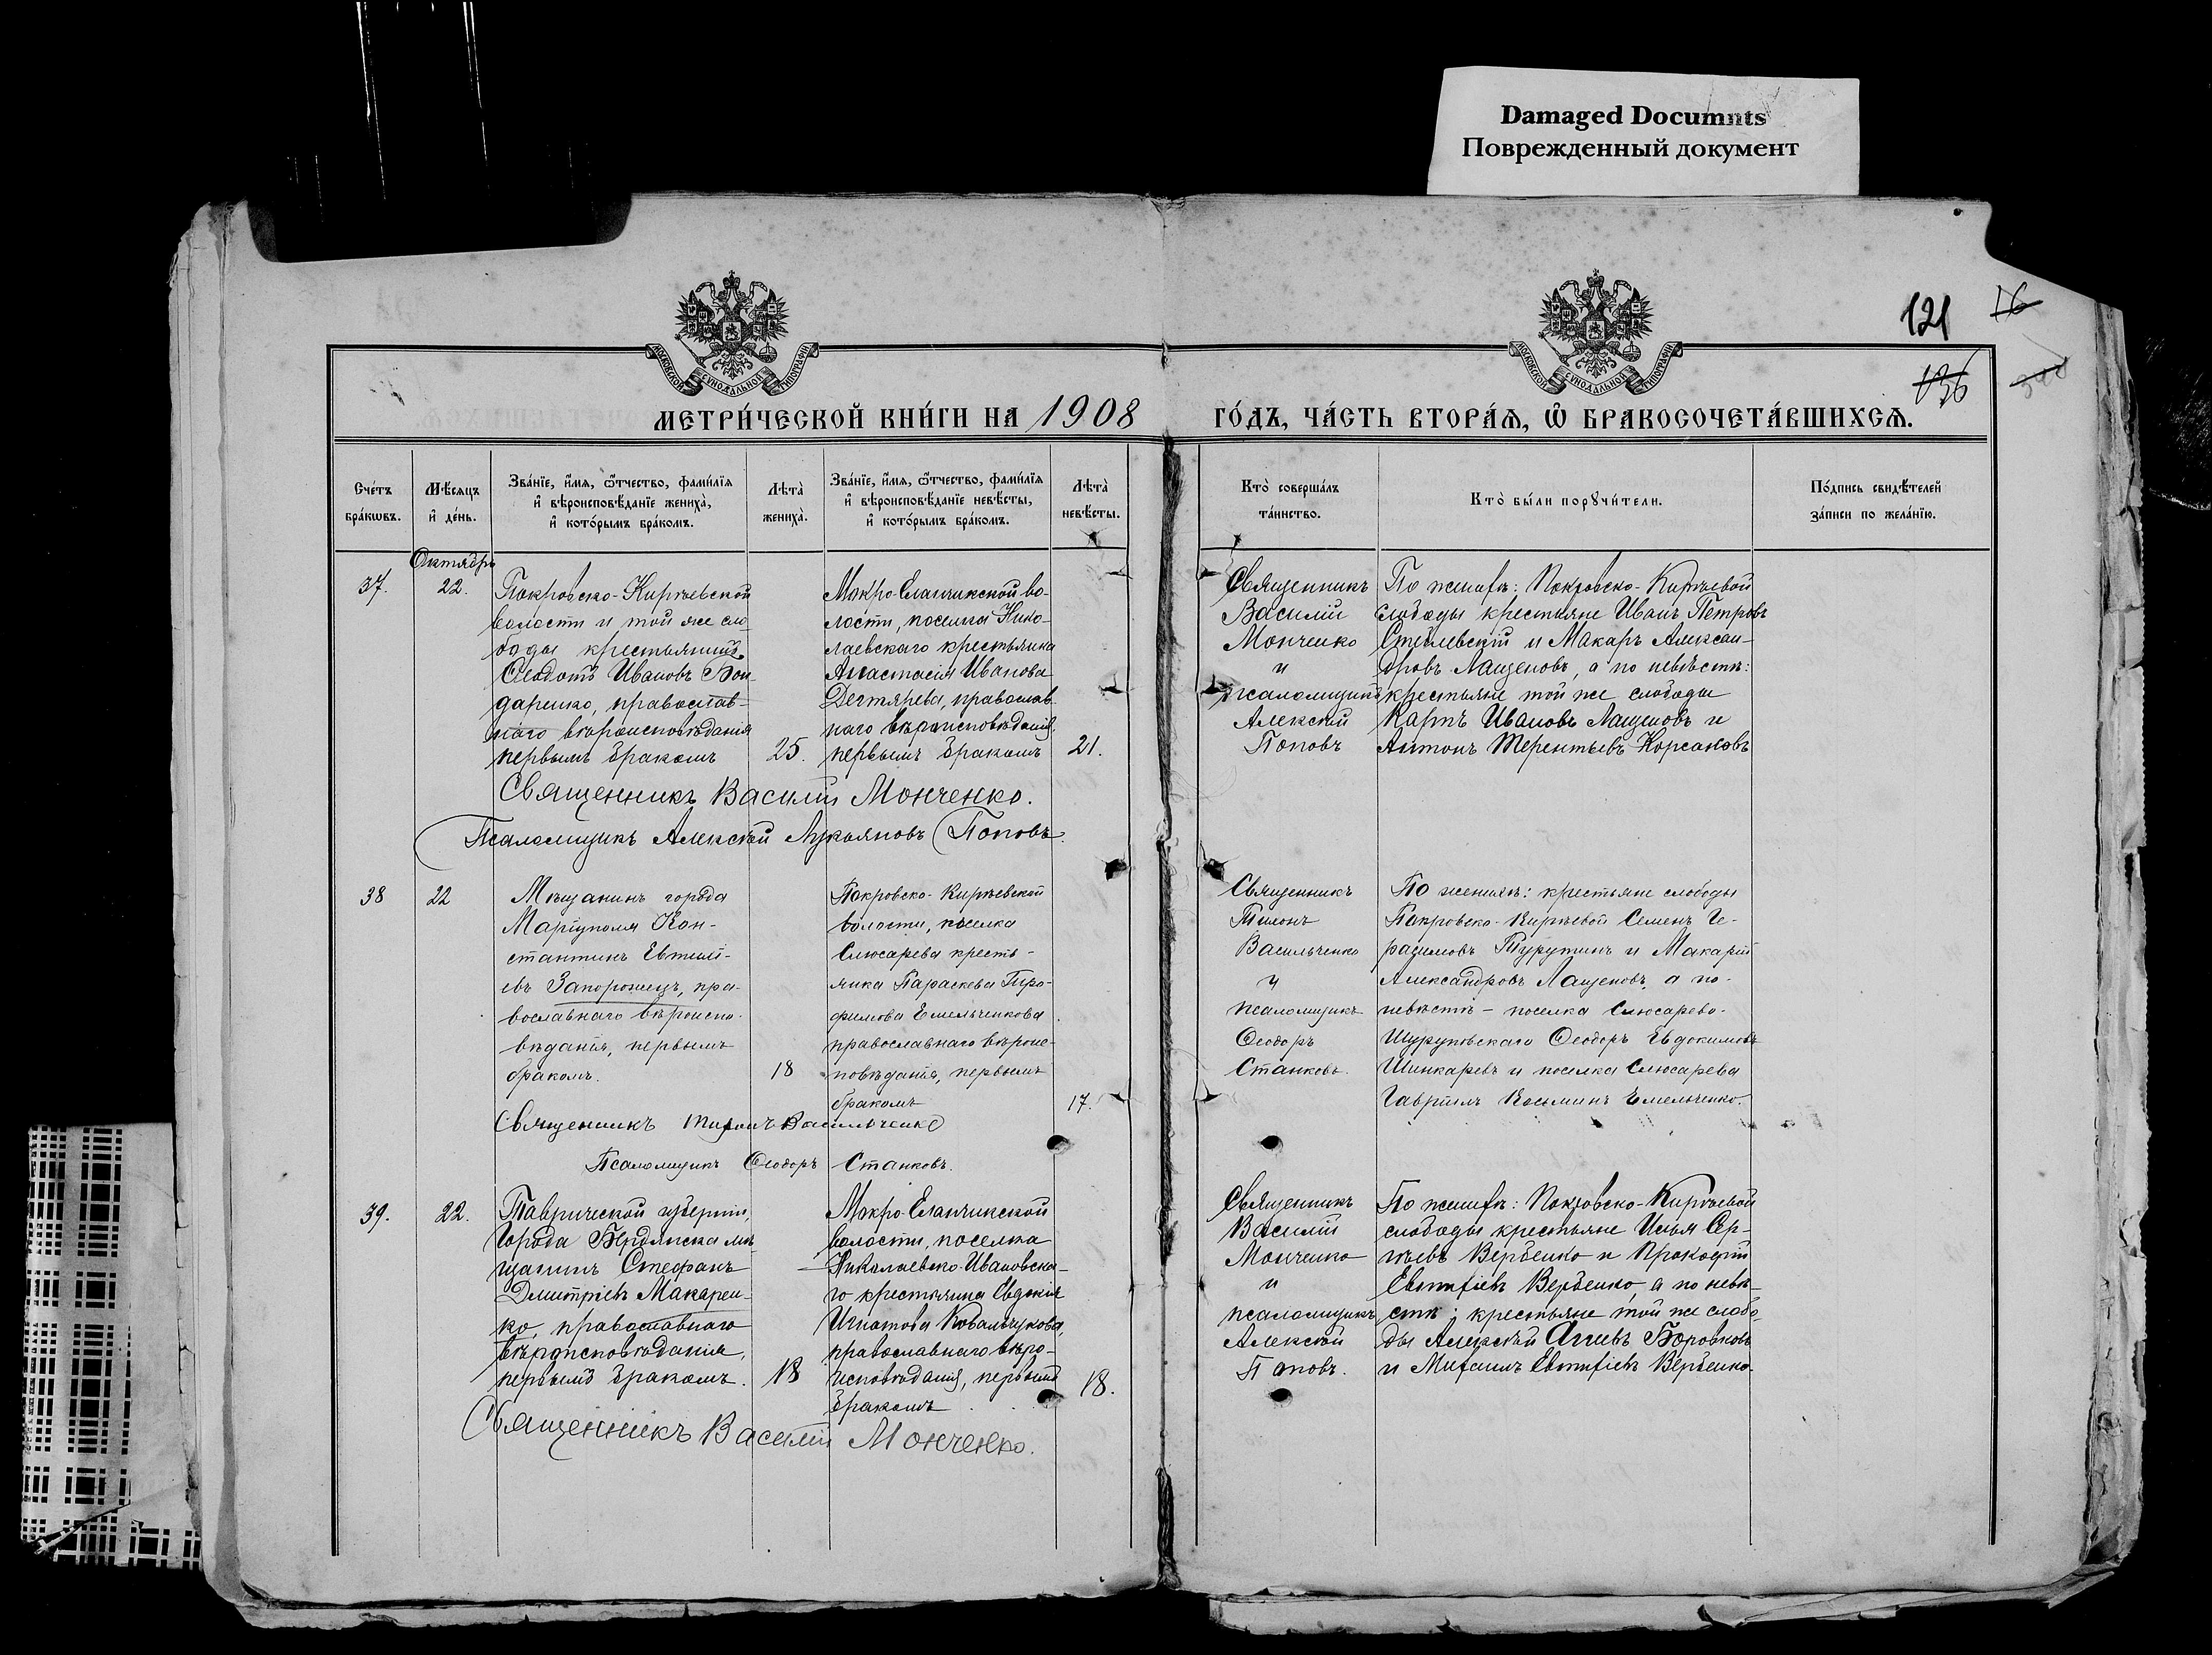 Damaged Documnts
Поврежденный документ
121
16
136
МЕТРИ́ЧЕСКОЙ КНИ́ГИ НА 1908
ГО́ДЪ, ЧА́СТЬ ВТОРА́Ѧ, Ѽ БРАКОСОЧЕТА́ВШИХСѦ.
Сче́тъ бра́кѡвъ.
Мѣ́сяцъ и҆ де́нь.
Зва́нїе, и҆́мя, ѻ҆́тчество, фами́лїя
и҆ вѣроисповѣ́данїе жениха̀,
и҆ кото́рымъ бра́комъ.
Лѣта̀ жениха̀.
Зва́нїе, и҆́мя, ѻ҆́тчество, фами́лїя
и҆ вѣроисповѣ́данїе невѣ́сты,
и҆ кото́рымъ бра́комъ.
Лѣта̀ невѣ́сты.
Кто̀ соверша́лъ та́инство.
Кто̀ бы́ли порꙋчи́тели.
По́дпись свидѣ́телей
за́писи по жела́нїю.
Октябрь
37.
22.
Покровско-Кирѣевской
волости и той же сло-
боды крестьянинъ
Ѳеодотъ Ивановъ Бон-
даренко, православ-
наго вѣроисповѣданія
первымъ бракомъ
25.
Мокро-Еланчикской во-
лости, поселка Нико-
лаевскаго крестьянка
Анастасія Иванова
Дегтярева, православ-
наго вѣроисповѣданія,
первымъ бракомъ
21.
Священникъ
Василій
Монченко
и
псаломщикъ
Алексѣй
Поповъ
По женихѣ: Покровско-Кирѣевой
слободы крестьяне Иванъ Петровъ
и Макаръ Алексан-
дровъ Лащеновъ, а по невѣстѣ:
крестьяне той же слободы
Карпъ Ивановъ Лащеновъ и
Антонъ Терентьевъ Корсаковъ
Священникъ Василій Монченко.
Псаломщикъ Алексѣй Лукьяновъ Поповъ.
38
22
Мѣщанинъ города
Маріуполя Кон-
стантинъ Евтихі-
евъ Запорожецъ, пра-
вославнаго вѣроиспо-
вѣданія, первымъ
бракомъ.
18
Покровско-Кирѣевской
волости, поселка
Слюсарева кресть-
янка Параскева Тро-
фимова Емельченкова
православнаго вѣроис-
повѣданія, первымъ
бракомъ
17.
Священникъ
Тихонъ
Васильченко
и
псаломщикъ
Ѳеодоръ
Станковъ.
По женихѣ: крестьяне слободы
Покровско-Кирѣевой Семенъ Ге-
расимовъ Турутинъ и Макарій
Александровъ Лащеновъ, а по
невѣстѣ – поселка Слюсарево-
Шуруповскаго Ѳеодоръ Евдокимовъ
Шинкаревъ и поселка Слюсарева
Гавріилъ Косьминъ Емельченко.
Священникъ Тихонъ Васильченко
Псаломщикъ Ѳеодоръ Станковъ.
39.
22.
Таврической губерніи,
города Бердянска мѣ-
щанинъ Стефанъ
Димитріевъ Макарен-
ко, православнаго
вѣроисповѣданія,
первымъ бракомъ.
18
Мокро-Еланчикской
волости, поселка
Николаевско-Ивановска-
го крестьянка Евдокія
Игнатова Ковальчукова,
православнаго вѣро-
исповѣданія, первымъ
бракомъ
18.
Священникъ
Василій
Монченко
и
псаломщикъ
Алексѣй
Поповъ.
По женихѣ: Покровско-Кирѣевой
слободы крестьяне Илья Сер-
гѣевъ Вербенко и Прокофій
Евтихіевъ Вербенко, а по невѣ-
стѣ: крестьяне той же слобо-
ды Алексѣй Боровковъ
и Михаилъ Евтихіевъ Вербенко.
Священникъ Василій Монченко.